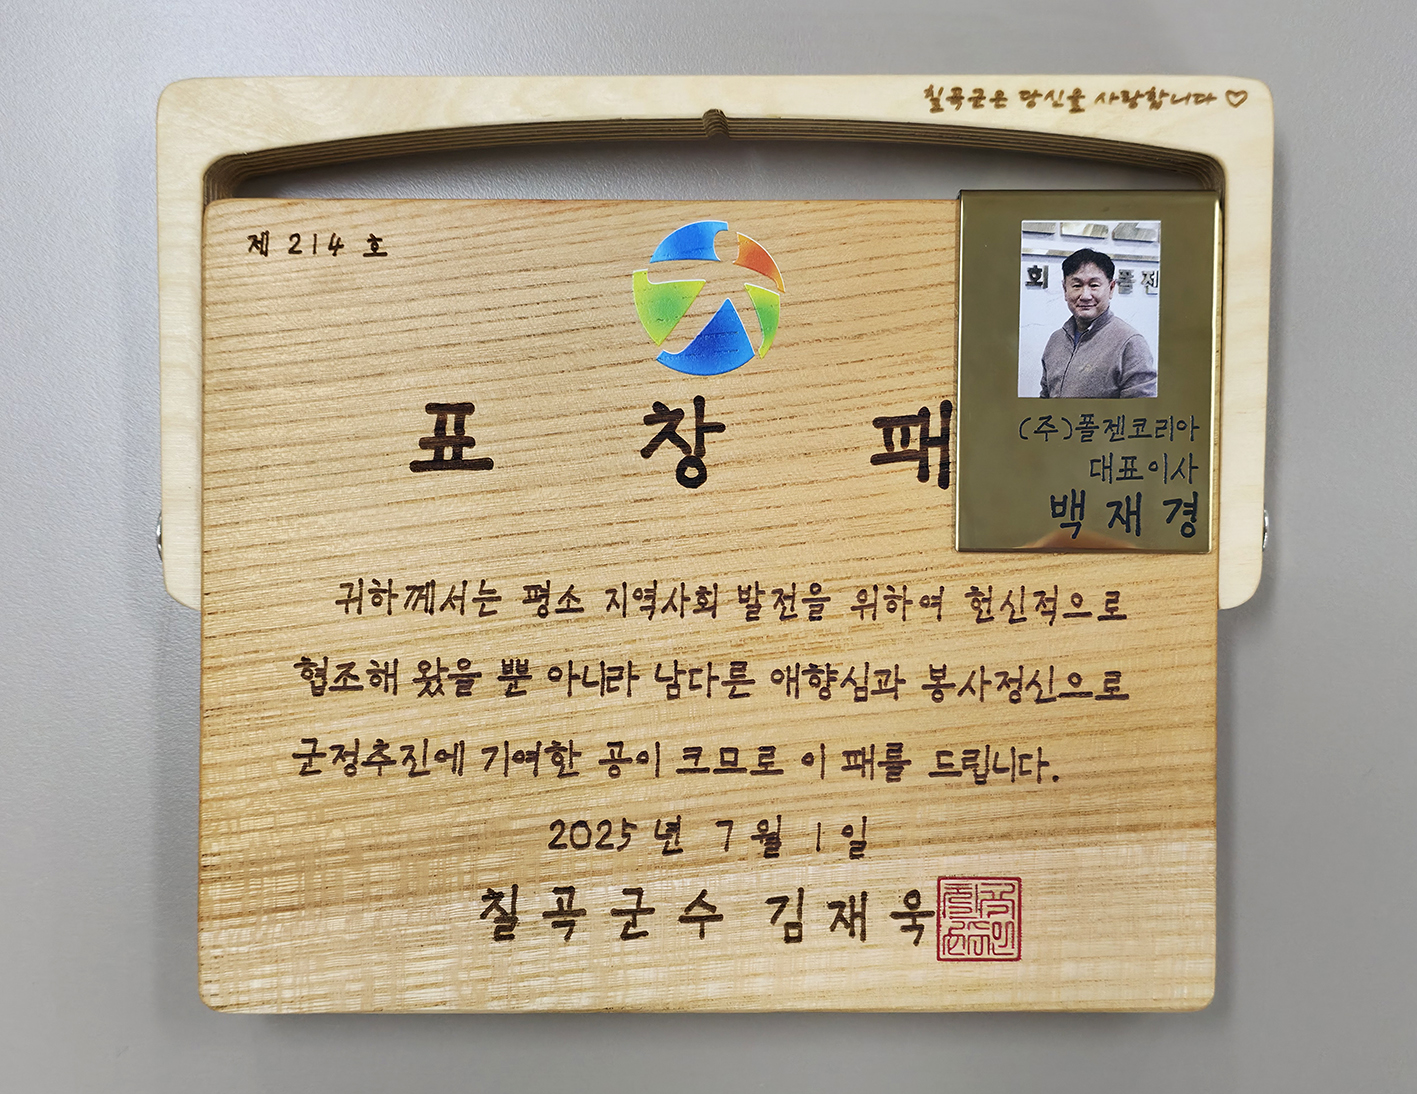 칠곡군은 당신을 사랑합니다♡
제 214 호
회 폴젠
표 창 패
(주)폴젠코리아
대표이사
백 재 경
귀하께서는 평소 지역사회 발전을 위하여 헌신적으로
협조해 왔을 뿐 아니라 남다른 애향심과 봉사정신으로
군정추진에 기여한 공이 크므로 이 패를 드립니다.
2025 년 7 월 1 일
칠 곡 군 수 김 재 욱